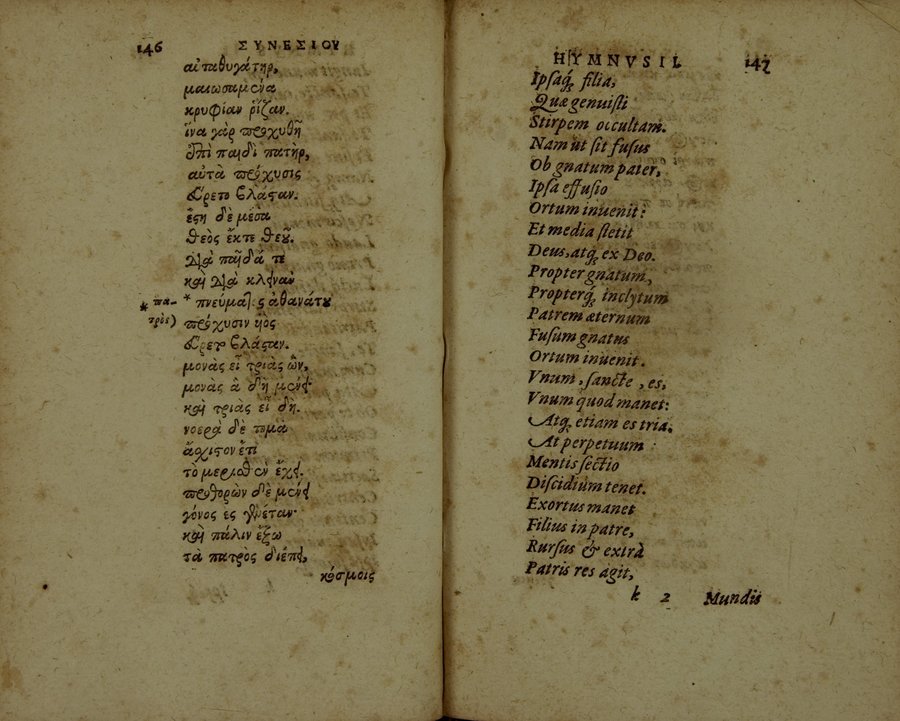 146 ΣΥΝΕΣΙΟΥ
αἵ τε θυγάτηρ,
μαιωσαμένα
κρυφίαν ῥίζαν.
ἵνα γὰρ προχυθῇ
ἐπὶ παιδὶ πατὴρ,
αὐτὰ πρόχυσις
εὕρετο βλάσταν.
ἔςη δὲ μέσα
θεὸς ἔκ τε θεοῦ.
Διὰ παῖδά τε
καὶ Διὰ κλεινὰν
* πνεύματος ἀθανάτου
* πα-
τρὸς)
πρόχυσιν υἱὸς
εὕρετο βλάσταν.
μονὰς εἶ τριὰς ὢν,
μονὰς ἃ δὴ μένει·
καὶ τριὰς εἶ δή.
νοερὰ δὲ τομὰ
ἄσχιστον ἔτι
τὸ μερισθὲν ἔχει.
προθορὼν δὲ μένει
γόνος ἐς γενέταν·
καὶ πάλιν ἔξω
τὰ πατρὸς διέπει,
κόσμοις
HYMNVS II. 147
Ipsaq́; filia,
Quæ genuisti
Stirpem occultam.
Nam ut sit fusus
Ob gnatum pater,
Ipsa effusio
Ortum inuenit:
Et media stetit
Deus, atq́; ex Deo.
Propter gnatum,
Propterq́; inclytum
Patrem æternum
Fusum gnatus
Ortum inuenit.
Vnum, sancte, es,
Vnum quod manet:
Atq́; etiam es tria.
At perpetuum
Mentis sectio
Discidium tenet.
Exortus manet
Filius in patre,
Rursus & extrà
Patris res agit,
k 2 Mundis